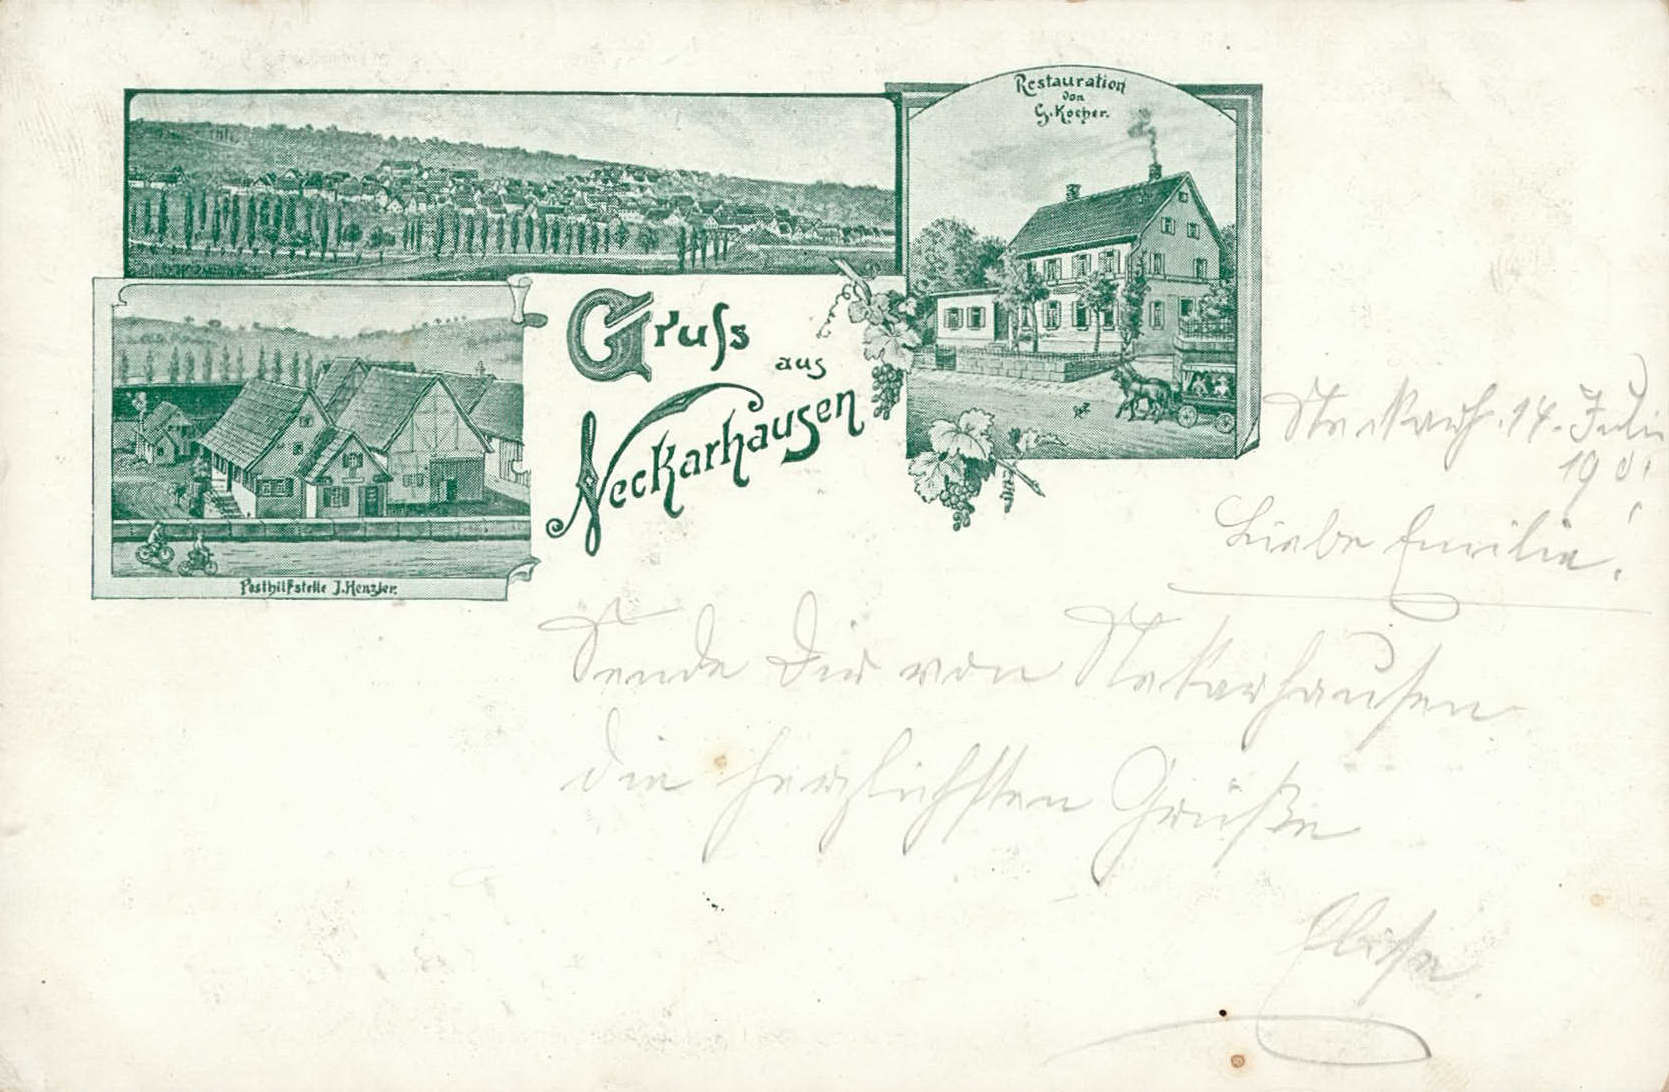 Restauration
von
G. Kocher.
Gruss
aus
Neckarhausen
Posthilfstelle J. Henzler.
14. Juli
Liebe Emilie!
Sende Dir von Nekarhausen
die herzlichsten Grüße
Elise